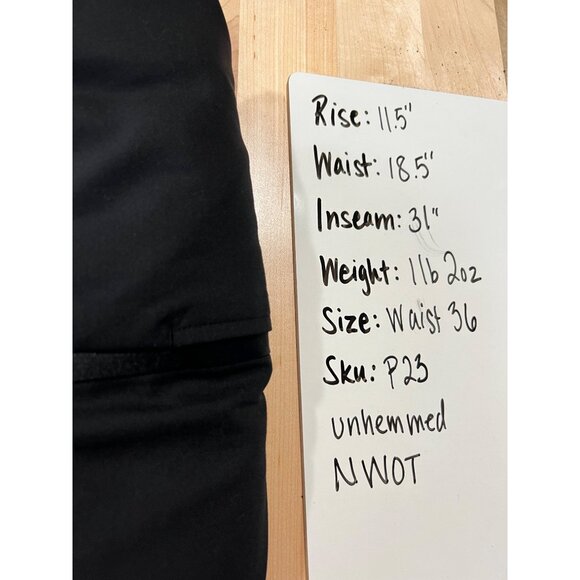 Rise: 11.5"
Waist: 18.5"
Inseam: 31"
Weight: 1lb 2oz
Size: Waist 36
Sku: P23
unhemmed
NWOT